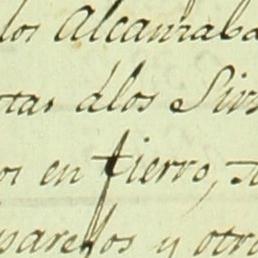 los Alcanzaba
tas dlos Sir
os en fierro,
parejos y otro